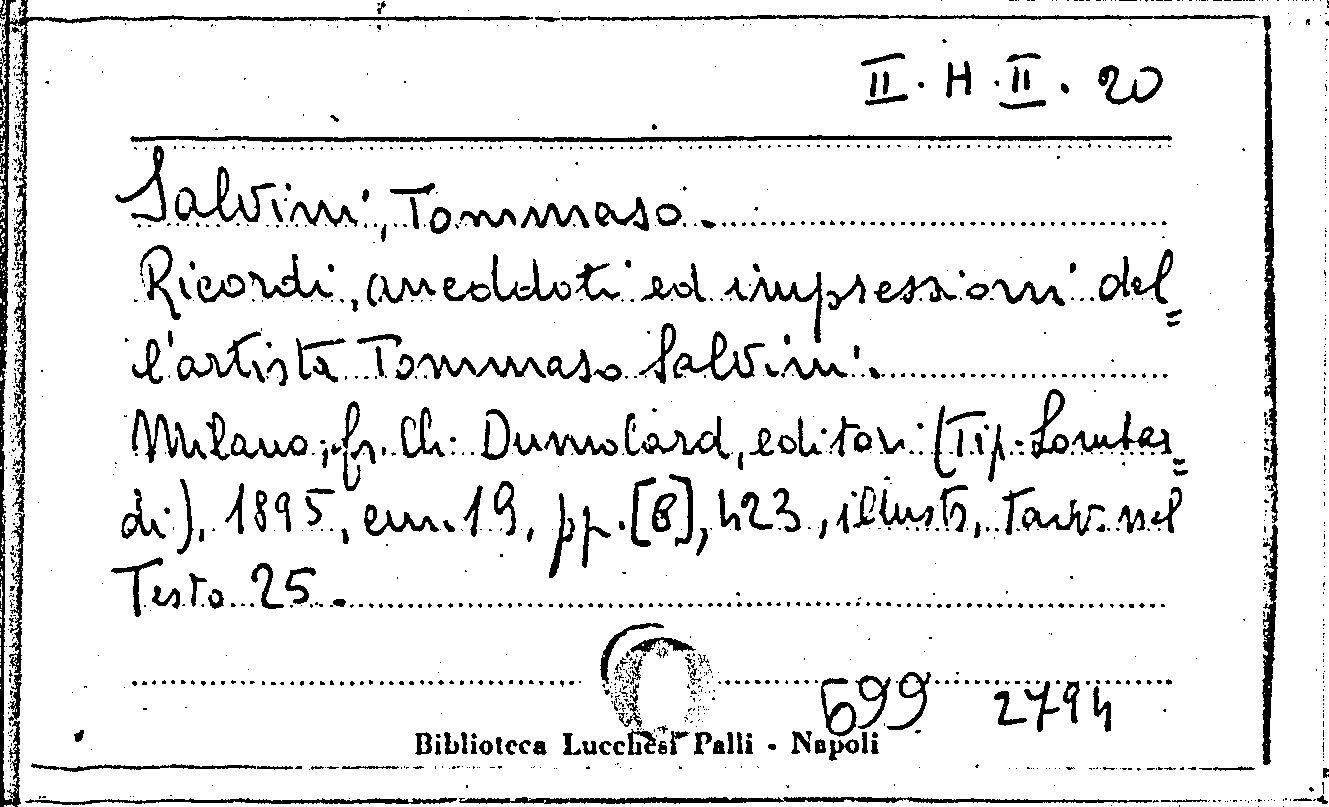 II. H. II. 20
Salvini, Tommaso.
Ricordi, aneddoti ed impressioni del=
l'artista Tommaso Salvini.
Milano, fr. Ch. Dumolard, editori (Tip. Lombar=
di), 1895, cm. 19, pp. [8], 423, illustr, tavv. nel
Testo 25.
699 2794
Biblioteca Lucchesi Palli - Napoli